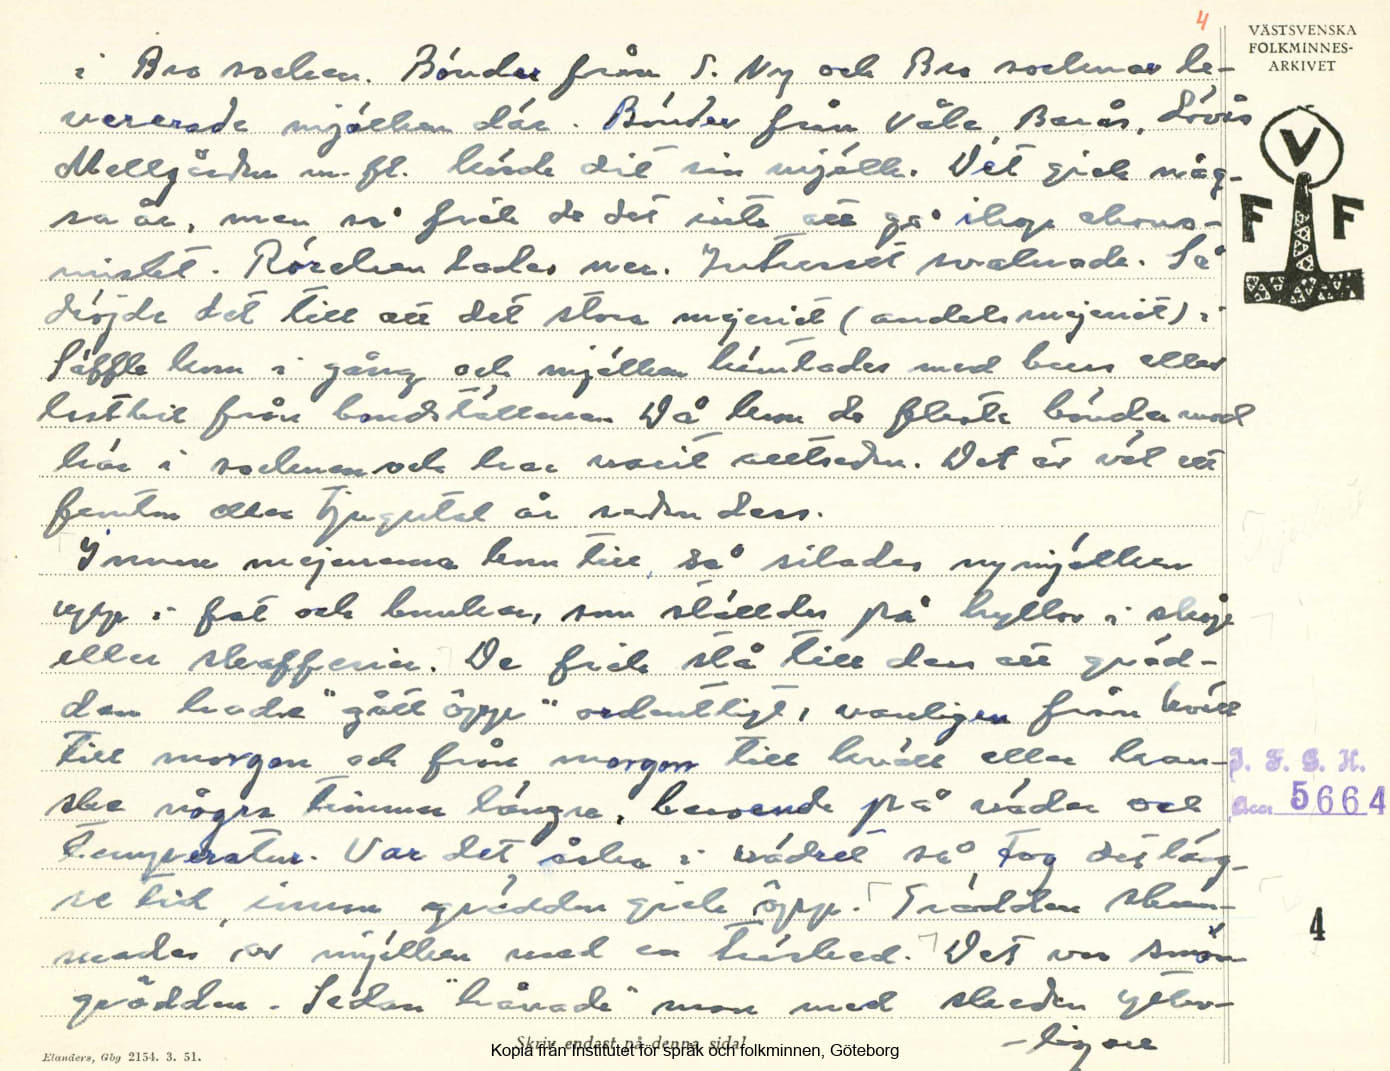 4
VÄSTSVENSKA
FOLKMINNES-
ARKIVET
i Bro socken. Bönder från S. Ny och Bro socknar le-
vererade mjölken där. Bönder från Våle Berås, Lövås
Mellgården m. fl. körde dit sin mjölk. Det gick någ-
ra år, men så fick de det inte att gå ihop ekono-
miskt. Rörelsen lades ner. Intresset svalnade. Så
dröjde det till att det stora mejeriet (andelsmejeriet) i
Säffle kom i gång och mjölken hämtades med buss eller
lastbil från bondställena. Då kom de flesta bönder med
här i socknen och har varit alltsedan. Det är väl ett
femton eller tjugutal år sedan dess.
Innan mejerierna kom till, så silades nymjölken
upp i fat och bunkar, som ställdes på hyllor i skåp
eller skafferier. De fick stå till dess att gräd-
dan hade "gått öpp" ordentligt, vanligen från kväll
till morgon och från morgon till kväll eller kan-
ske några timmar längre, beroende på väder och
temperatur. Var det åska i vädret så tog det läng-
re tid, innan grädden gick öpp. Grädden skum-
mades av mjölken med en träsked. Det var smör
grädden. Sedan "håvade" man med skeden ytter-
-ligare
V
F F
I. F. G. H.
5664
4
Skriv endast på denna sida!
Kopia från Institutet för språk och folkminnen, Göteborg
Elanders, Gbg 2154. 3. 51.